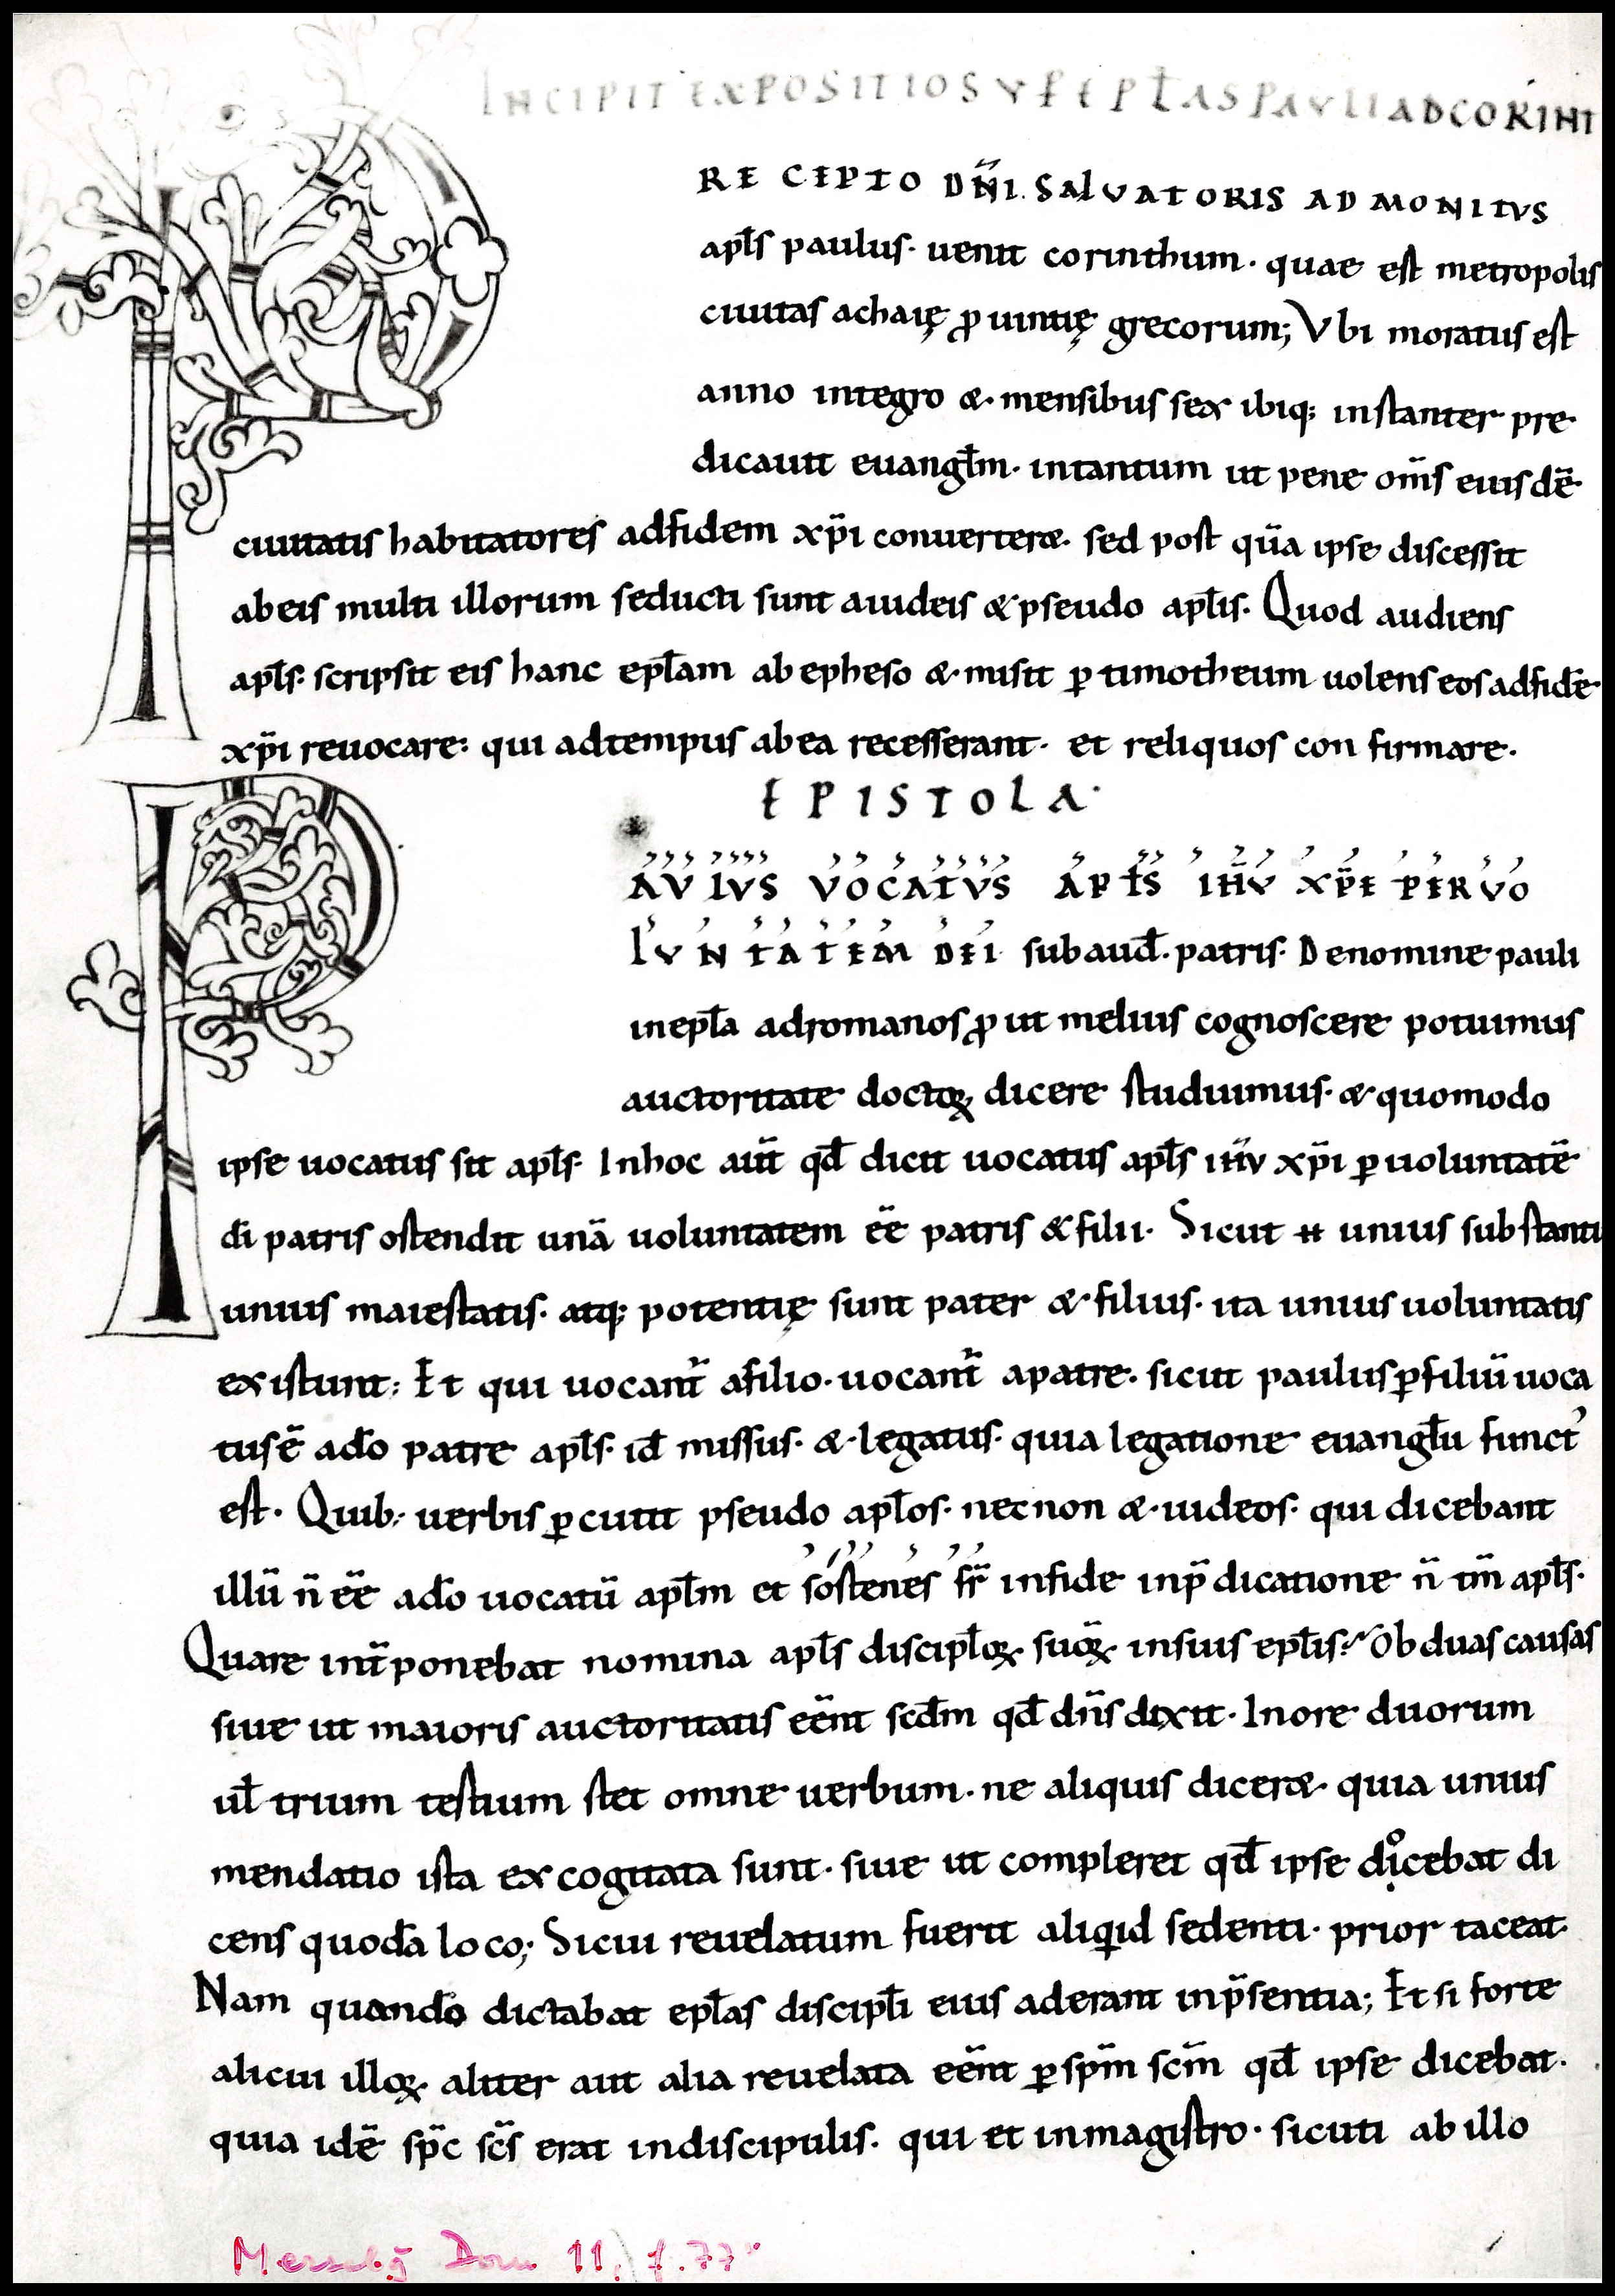 INCIPIT EXPOSITIO SUP EPŁAS PAULI AD CORINI
PRE CEPTO DN̄I. SALVATORIS AD MONITVS
apƚs paulus· uenit corinthum· quae est metropolis
ciuitas achaię ꝓuintię grecorum; Vbi moratus est
anno integro &· mensibus sex ibiq; instanter pre
dicauit euangƚm· intantum ut pene om̄s eiusdē
ciuitatis habitatores adfidem xp̄i conuerter&· sed post quā ipse discessit
abeis multi illorum seducti sunt aiudeis & pseudo apƚis· Quod audiens
apƚs· scripsit eis hanc epƚam ab epheso &· misit ꝑ timotheum uolens eos adfidē
xp̄i reuocare: qui adtempus abea recesserant· et reliquos con firmare.
EPISTOLA·
PAVLVS VOCATVS APƚS IHV̄ XP̄I PER VO
LVNTATEM DEI subauđ· patris· De nomine pauli
inepƚa adromanos ꝓut melius cognoscere potuimus
auctoritate doctoꝝ dicere studuimus· &· quomodo
ipse uocatus sit apƚs· Inhoc aūt qđ dicit uocatus apƚs ihū xp̄i ꝑ uoluntatē
dī patris ostendit unā uoluntatem eē patris & filii· Sicut ħ unius substanti
unius maiestatis· atq; potentię sunt pater &· filius· ita unius uoluntatis
existunt; Et qui uocant̄ afilio· uocant̄ apatre· sicut paulus ꝑ filiū uoca
tus ē adō patre apƚs· iđ missus· &· legatus· quia legatione euangƚii funct'
est· Quib; uerbis ꝑcutit pseudo apƚos· necnon &· iudeos· qui dicebant
illū n̄ eē adō uocatū apƚm et sostenes fr̄ infide inp̄dicatione n̄ tm̄ apƚs·
Quare int̄ponebat nomina apƚs discipƚoꝝ suoꝝ insuis epƚis? Ob duas causas
siue ut maioris auctoritatis eēnt scđm qđ dn̄s dixit· Inore duorum
uƚ trium testium stet omne uerbum· ne aliquis dicer& quia unius
mendatio ista excogitata sunt· siue ut compleret qđ ipse docebat di
cens quodā loco; Sicui reuelatum fuerit aliqid sedenti· prior taceat·
Nam quando dictabat epƚas discipƚi eius aderant inp̄sentia; Et si forte
alicui illoꝝ aliter aut alia reuelata eēnt ꝑ sp̄m scm̄ qđ ipse dicebat·
quia idē sp̄c sc̄s erat indiscipulis· qui et inmagistro· sicuti ab illo
Dom 11, f.77